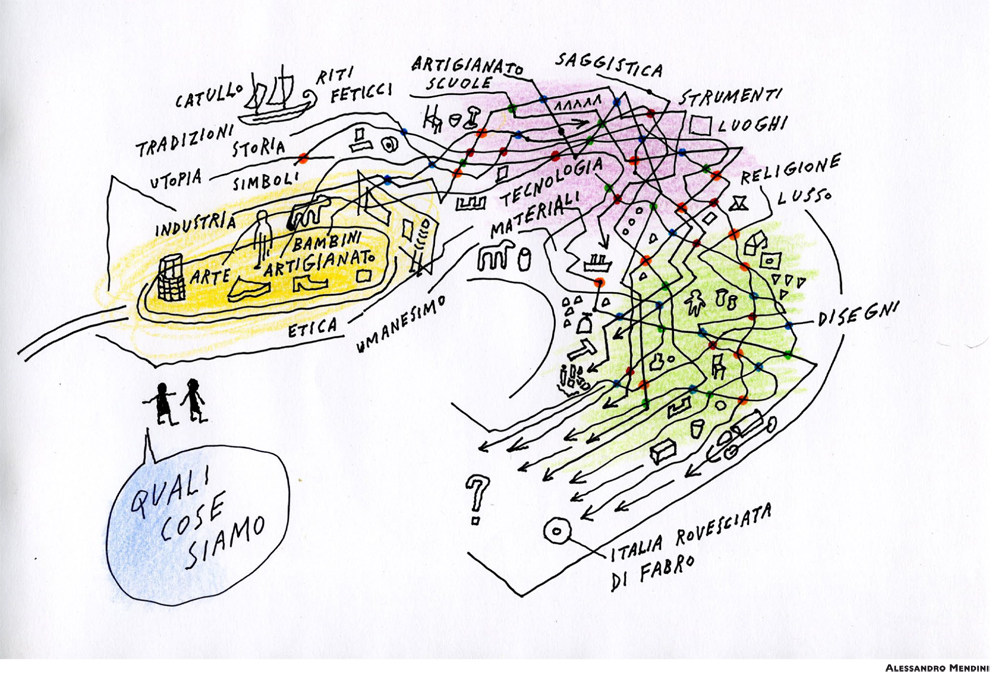 CATULLO
RITI
FETICCI
ARTIGIANATO
SCUOLE
SAGGISTICA
STRUMENTI
LUOGHI
TRADIZIONI
STORIA
UTOPIA
SIMBOLI
TECNOLOGIA
MATERIALI
RELIGIONE
LUSSO
INDUSTRIA
BAMBINI
ARTE
ARTIGIANATO
ETICA
UMANESIMO
DISEGNI
QUALI
COSE
SIAMO
?
ITALIA ROVESCIATA
DI FABRO
ALESSANDRO MENDINI